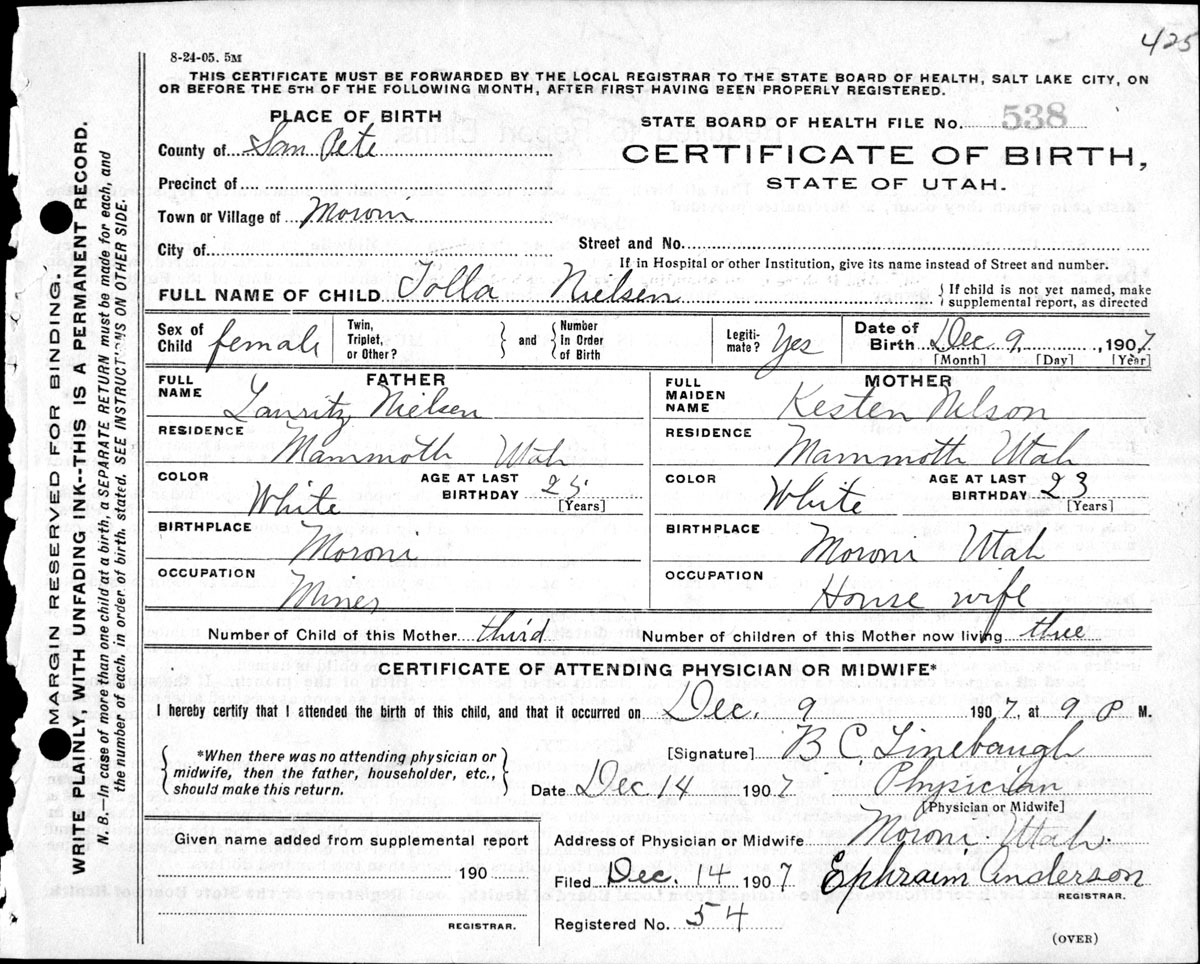 425
8-24-05. 5M
THIS CERTIFICATE MUST BE FORWARDED BY THE LOCAL REGISTRAR TO THE STATE BOARD OF HEALTH, SALT LAKE CITY, ON
OR BEFORE THE 5TH OF THE FOLLOWING MONTH, AFTER FIRST HAVING BEEN PROPERLY REGISTERED.
PLACE OF BIRTH
County of San Pete
Precinct of
Town or Village of Moroni
City of
STATE BOARD OF HEALTH FILE No. 538
CERTIFICATE OF BIRTH,
STATE OF UTAH.
Street and No.
If in Hospital or other Institution, give its name instead of Street and number.
FULL NAME OF CHILD Tolla Nielsen { If child is not yet named, make
supplemental report, as directed
Sex of Child female Twin, Triplet, or Other? } and { Number In Order of Birth Legiti-mate? Yes Date of Birth Dec 9, 1907
[Month] [Day] [Year]
FATHER
FULL NAME Lauritz Nielsen
RESIDENCE Mammoth Utah
COLOR White AGE AT LAST BIRTHDAY 25 [Years]
BIRTHPLACE Moroni
OCCUPATION Miner
MOTHER
FULL MAIDEN NAME Kesten Nelson
RESIDENCE Mammoth Utah
COLOR White AGE AT LAST BIRTHDAY 23 [Years]
BIRTHPLACE Moroni Utah
OCCUPATION House wife
Number of Child of this Mother third Number of children of this Mother now living three
CERTIFICATE OF ATTENDING PHYSICIAN OR MIDWIFE*
I hereby certify that I attended the birth of this child, and that it occurred on Dec. 9 1907, at 9 P M.
{ *When there was no attending physician or
midwife, then the father, householder, etc.,
should make this return. }
[Signature] B C. Linebaugh
Date Dec 14 1907 Physician
[Physician or Midwife]
Given name added from supplemental report
190
REGISTRAR.
Address of Physician or Midwife Moroni Utah.
Filed Dec. 14 1907 Ephraim Anderson
REGISTRAR.
Registered No. 54
(OVER)
MARGIN RESERVED FOR BINDING.
WRITE PLAINLY, WITH UNFADING INK--THIS IS A PERMANENT RECORD.
N. B.—In case of more than one child at a birth, a SEPARATE RETURN must be made for each, and
the number of each, in order of birth, stated. SEE INSTRUCTIONS ON OTHER SIDE.